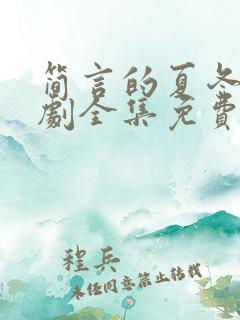 简言的夏冬
劇全集免費
程兵
未经同意禁止转载